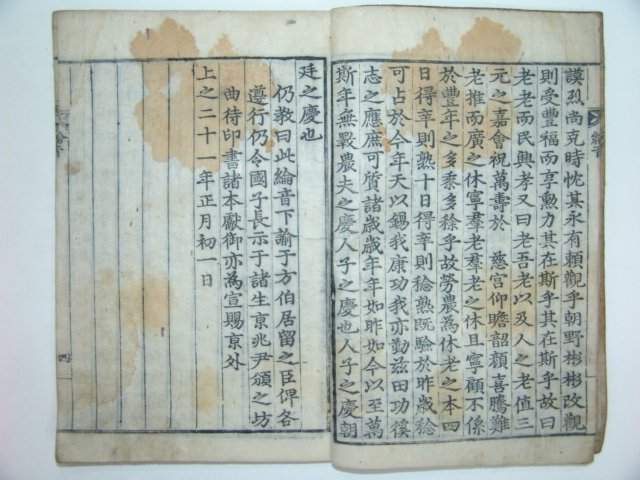 謨烈尚克時忱其永有賴觀乎朝野彬彬改觀
則受豐福而享勲力其在斯乎其在斯乎故曰
老老而民興孝又曰老吾老以及人之老值三
元之嘉會祝萬壽於 慈宮仰瞻韶顔喜騰難
老推而廣之休寧羣老羣老之休且寧顧不係
於豐年之多黍多稌乎故勞農為休老之本四
日得辛則熟十日得辛則稔熟既驗於昨歲稔
可占於今年天以錫我康功我亦勤茲田功徯
志之應庶可質諸歲歲年年如昨如今以至萬
斯年無斁農夫之慶人子之慶也人子之慶朝
廷之慶也
仍教曰此綸音下諭于方伯居留之臣俾各
遵行仍令國子長示于諸生京兆尹頒之坊
曲待印書諸本獻御亦為宣賜京外
上之二十一年正月初一日
綸音
四